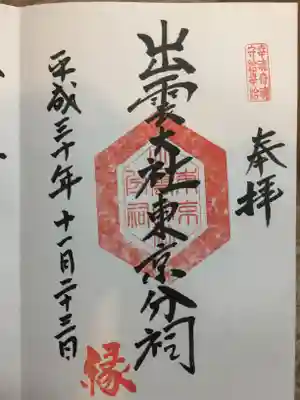 奉拝
出雲大社東京分祠
平成三十年十一月二十三日
縁